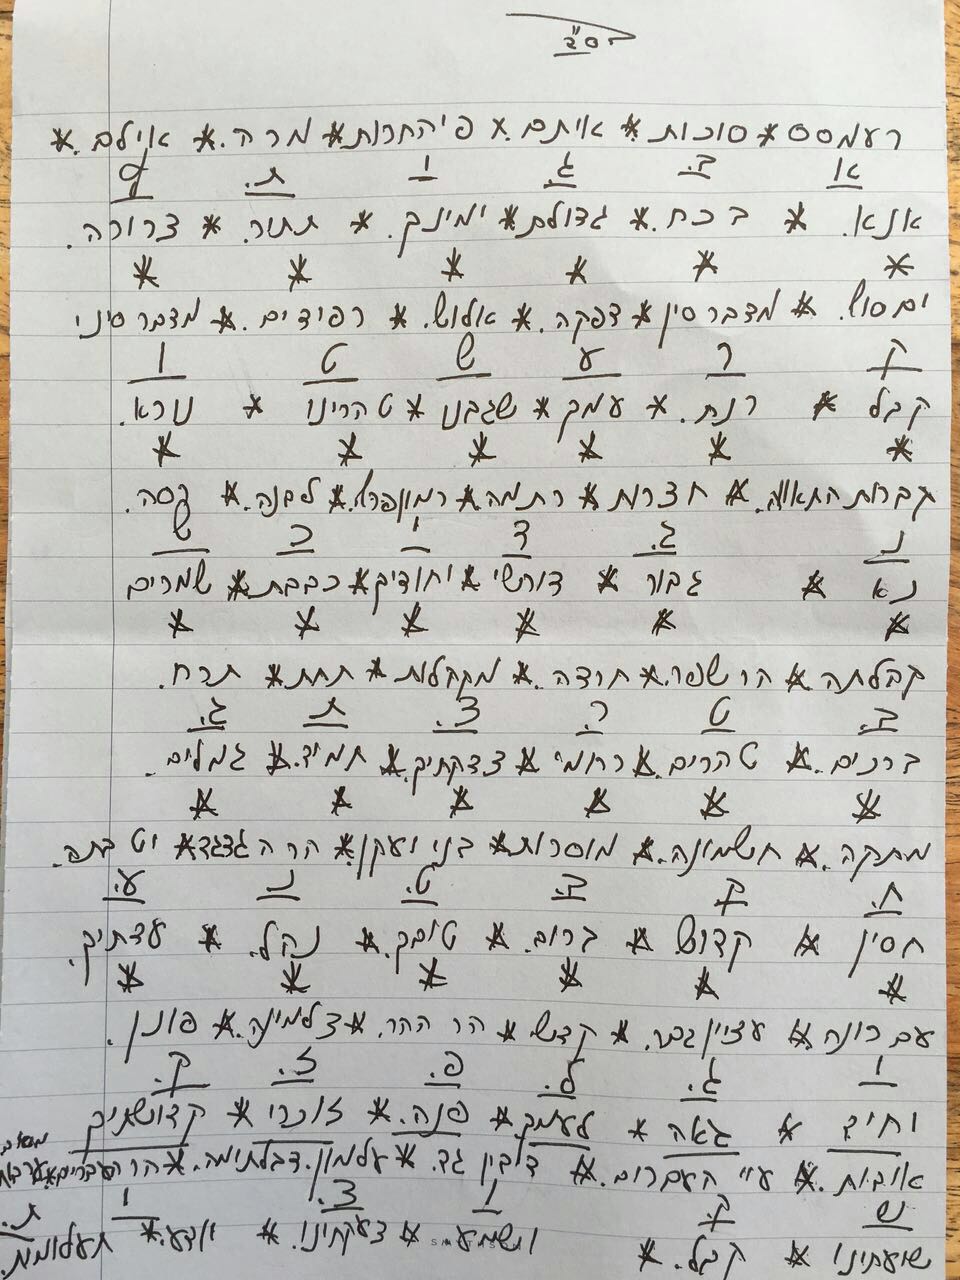 בס"ד
רעמסס * סוכות * איתם. * פיהחרות * מרה. * אילם. *
א ב. ג. י ת. ץ
אנא. * בכח. * גדולת * ימינך. * תתיר. * צרורה.
* * * * * *
ים סוף. * מדבר סין * דפקה. * אלוש. * רפידים. * מדבר סיני
ק ר ע ש ט ו
קבל * רנת. * עמך * שגבנו * טהרינו * נורא.
* * * * * *
קברות התאוה. * חצרות * רתמה * רמון פרץ. * לבנה. * רסה.
נ. ג. ד י כ ש
נא * גבור * דורשי * יחודיך * כבבת * שמרים
* * * * * *
קהלתה. * הר שפר. * חרדה. * מקהלות * תחת * תרח.
ב. ט ר. צ. ת ג.
ברכים. * טהרים. * רחמי * צדקתיך. * תמיד. * גמלים.
* * * * * *
מתקה. * חשמונה. * מוסרות * בני יעקן. * הר הגדגד * יטבתה.
ח. ק ב. ט. נ. ע.
חסין * קדוש. * ברוב. * טובך. * נהל. * עדתיך.
* * * * * *
עברונה * עציון גבר. * קדש * הר ההר. * צלמונה. * פונן.
י ג. ל. פ. ז. ק.
יחיד * גאה * לעמך * פנה. * זוכרי * קדושתיך
אובות. * עיי העברים. * דיבן גד. * עלמון דבלתימה. * הר העברים. * ערבות מואב
ש ק. ו צ. י ת.
שועתינו * קבל. * ושמע * צעקתינו. * יודע. * תעלומת.